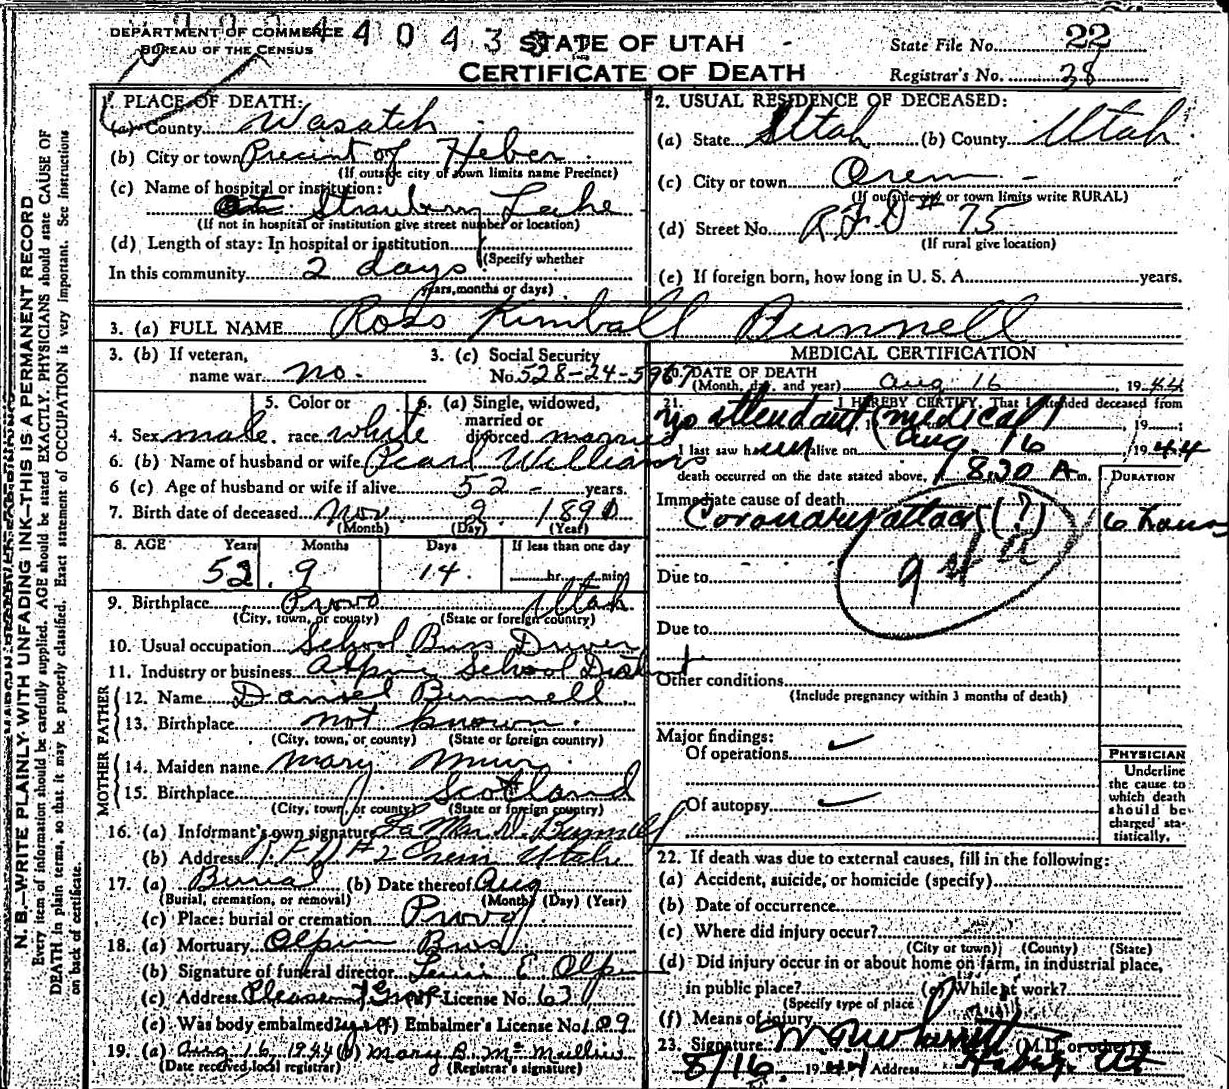 DEPARTMENT OF COMMERCE
BUREAU OF THE CENSUS
STATE OF UTAH
CERTIFICATE OF DEATH
State File No. 22
Registrar's No. 38
N. B.—WRITE PLAINLY WITH UNFADING INK—THIS IS A PERMANENT RECORD
Every item of information should be carefully supplied. AGE should be stated EXACTLY. PHYSICIANS should state CAUSE OF
DEATH in plain terms, so that it may be properly classified. Exact statement of OCCUPATION is very important. See instructions
on back of certificate.
1. PLACE OF DEATH:
(a) County Wasatch
(b) City or town Precint of Heber
(If outside city or town limits name Precinct)
(c) Name of hospital or institution:
Strawbery Lake
(If not in hospital or institution give street number or location)
(d) Length of stay: In hospital or institution
(Specify whether
In this community 2 days
years, months or days)
2. USUAL RESIDENCE OF DECEASED:
(a) State Utah (b) County Utah
(c) City or town Orem
(If outside city or town limits write RURAL)
(d) Street No. R.F.D # 75
(If rural give location)
(e) If foreign born, how long in U. S. A. years.
3. (a) FULL NAME Ross Kimball Bunnell
3. (b) If veteran,
name war no.
3. (c) Social Security
No. 528-24-5967
4. Sex male
5. Color or
race white
6. (a) Single, widowed,
married or
divorced married
6. (b) Name of husband or wife Pearl Williams
6 (c) Age of husband or wife if alive 52 years.
7. Birth date of deceased Nov. 9 1891
(Month) (Day) (Year)
8. AGE Years Months Days If less than one day
52 9 14 hr. min.
9. Birthplace Provo Utah
(City, town, or county) (State or foreign country)
10. Usual occupation School Bus Driver
11. Industry or business Alpine School District
FATHER
12. Name Daniel Bunnell
13. Birthplace not known.
(City, town, or county) (State or foreign country)
MOTHER
14. Maiden name Mary Muir
15. Birthplace Scotland
(City, town, or county) (State or foreign country)
16. (a) Informant's own signature Bunnell
(b) Address R.F.D #2 Orem Utah
17. (a) Burial (b) Date thereof Aug
(Burial, cremation, or removal) (Month) (Day) (Year)
(c) Place: burial or cremation Provo
18. (a) Mortuary Olpin Bros
(b) Signature of funeral director E Olpin
(c) Address Pleasant Grove License No. 63
(e) Was body embalmed? yes (f) Embalmer's License No. 109
19. (a) Aug. 16, 1944 (b) Mary B. McMullin
(Date received local registrar) (Registrar's signature)
MEDICAL CERTIFICATION
20. DATE OF DEATH
(Month, day, and year) Aug 16 1944
21. I HEREBY CERTIFY, That I attended deceased from
No attendant (medical) 19
I last saw h alive on Aug. 16 1944
death occurred on the date stated above, 8.30 A m.
DURATION
Immediate cause of death
Coronary attack (?) 6 hours
Due to
Due to
Other conditions
(Include pregnancy within 3 months of death)
Major findings:
Of operations
Of autopsy
PHYSICIAN
Underline
the cause to
which death
should be
charged sta-
tistically.
22. If death was due to external causes, fill in the following:
(a) Accident, suicide, or homicide (specify)
(b) Date of occurrence
(c) Where did injury occur?
(City or town) (County) (State)
(d) Did injury occur in or about home on farm, in industrial place,
in public place? (e) While at work?
(Specify type of place
(f) Means of injury
23. Signature (M.D. or other)
8/16 1944 Address Heber, Ut